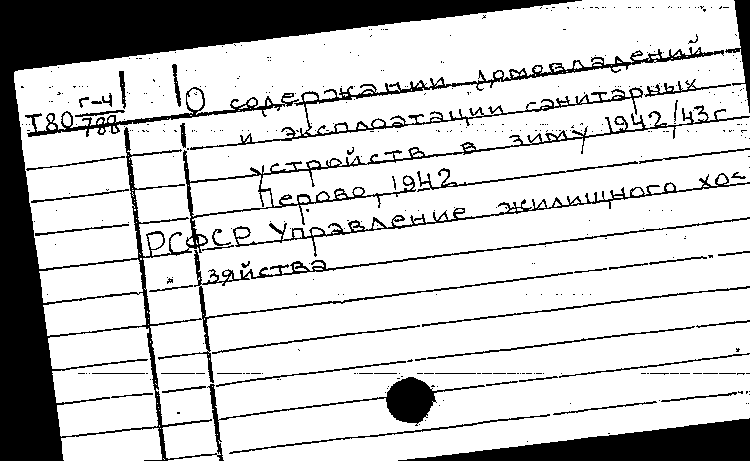 Т80 г-4/788 О содержании домовладений
и эксплоатации санитарных
устройств в зиму 1942/43г
Перово, 1942.
РСФСР. Управление жилищного хо-
зяйства